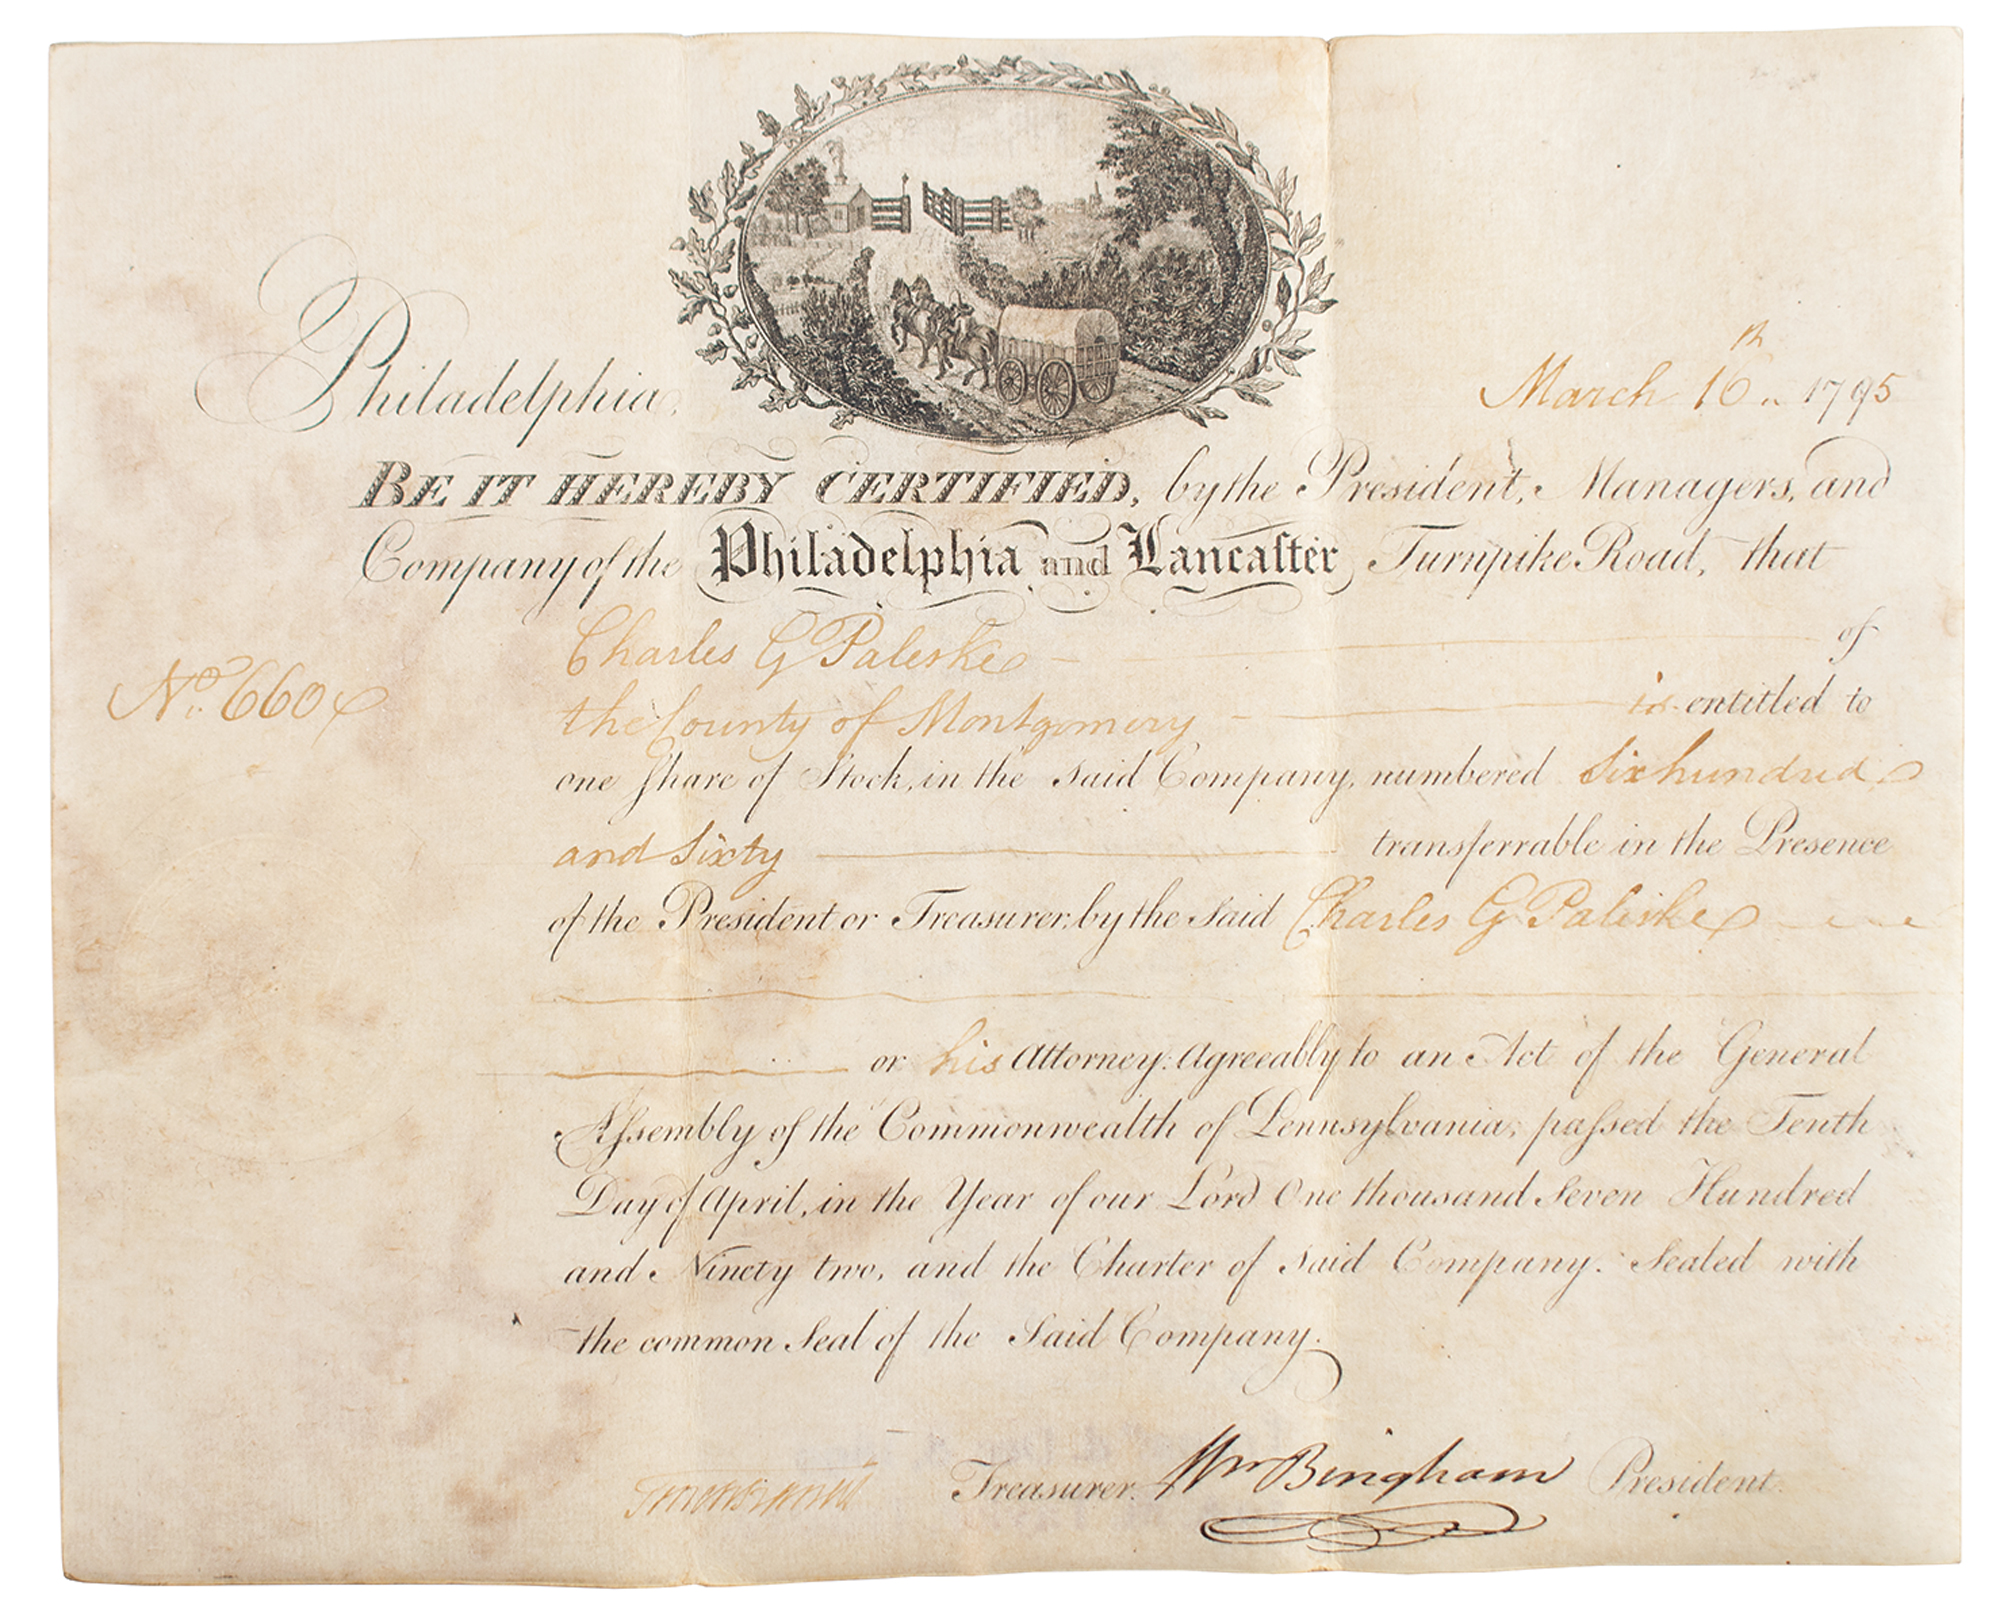 Philadelphia, March 16th.. 1795
BE IT HEREBY CERTIFIED, by the President, Managers, and
Company of the Philadelphia and Lancaſter Turnpike Road, that
Charles G Paleske of
No. 660
the County of Montgomery is entitled to
one ſhare of Stock, in the said Company, numbered Six hundred
and Sixty transferrable in the Presence
of the President or Treasurer, by the said Charles G Paleske
or his Attorney: Agreeably to an Act of the General
Aſsembly of the Commonwealth of Pennsylvania, paſsed the Tenth
Day of April, in the Year of our Lord One thousand Seven Hundred
and Ninety two, and the Charter of said Company. Sealed with
the common Seal of the Said Company.
Treasurer. Wm Bingham President.